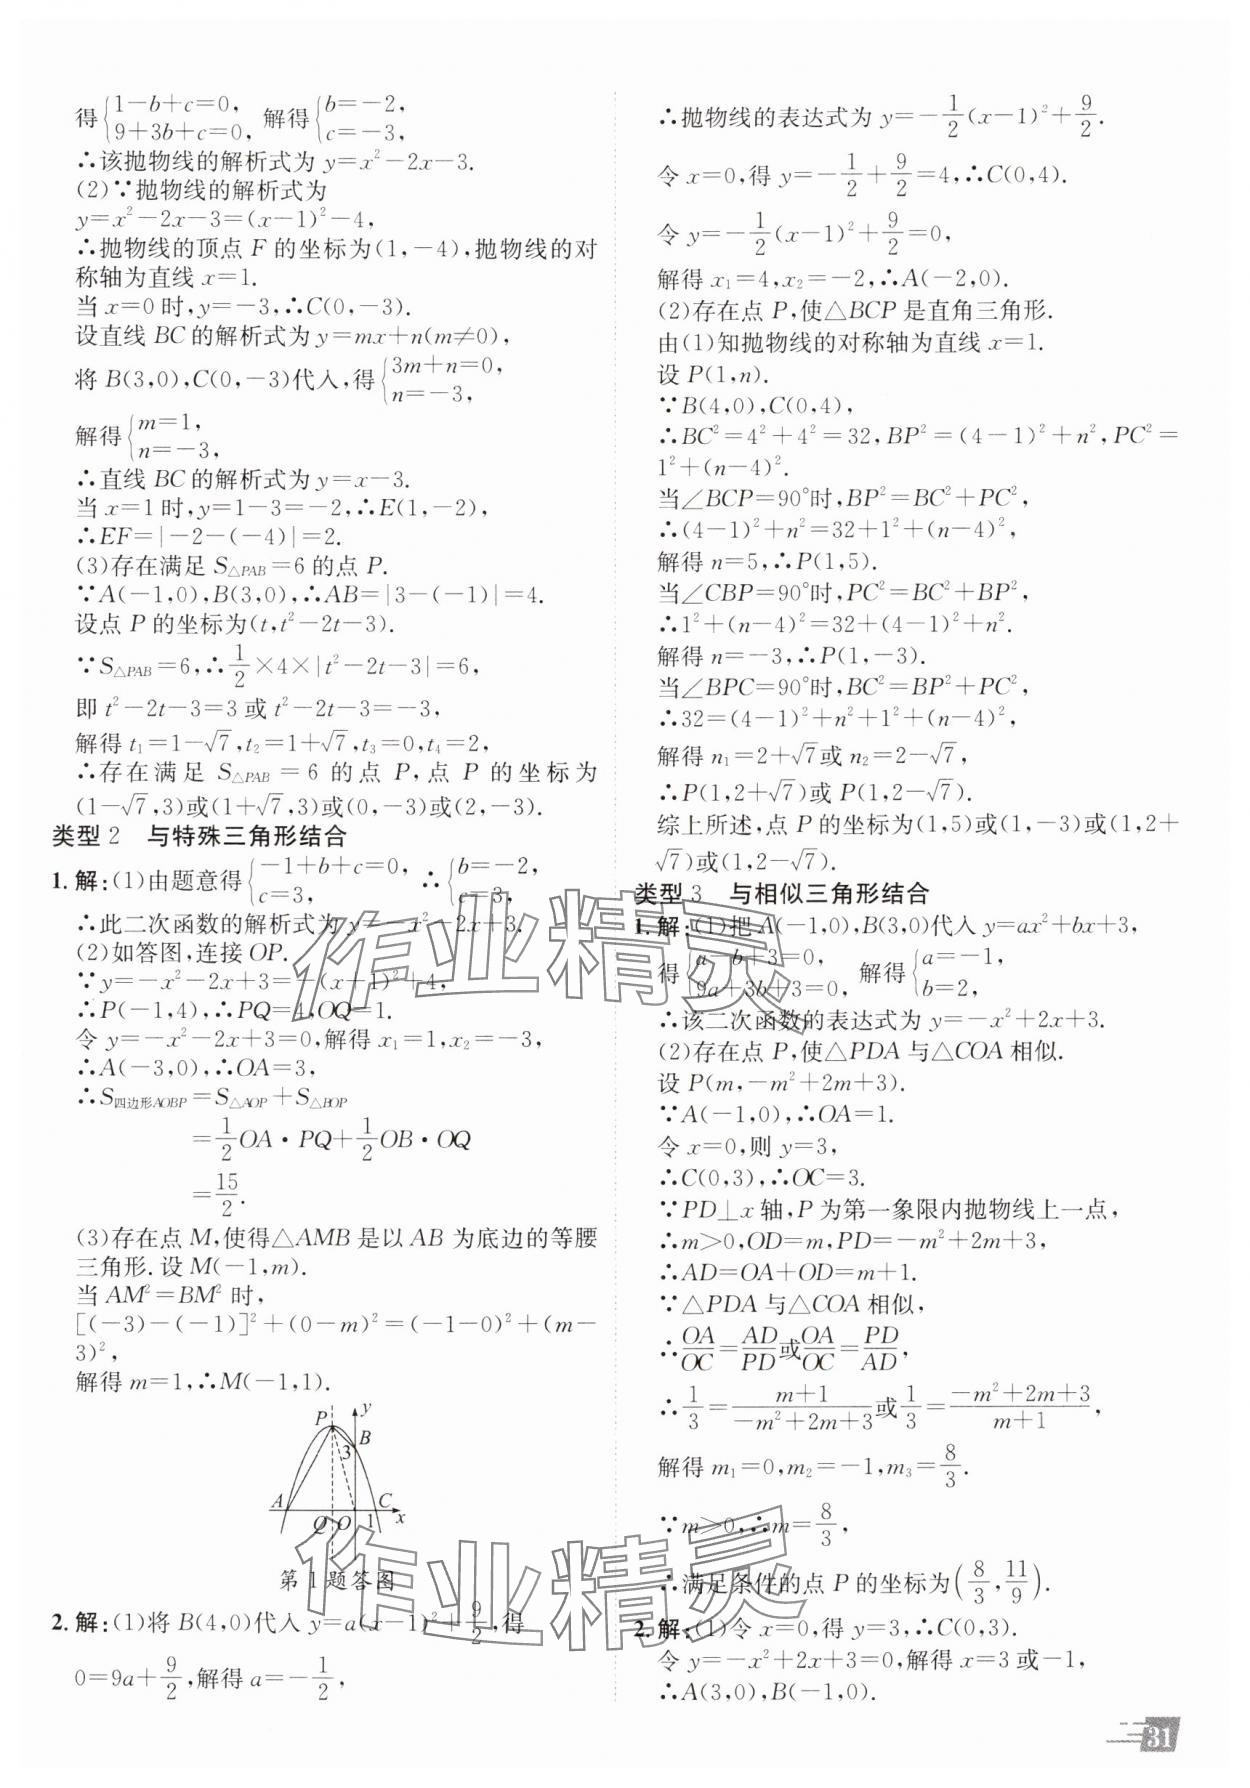 得{1-b+c=0, 9+3b+c=0, 解得{b=-2, c=-3,
∴该抛物线的解析式为 y=x²-2x-3.
(2)∵抛物线的解析式为
y=x²-2x-3=(x-1)²-4,
∴抛物线的顶点 F 的坐标为(1,-4),抛物线的对
称轴为直线 x=1.
当 x=0 时,y=-3,∴C(0,-3).
设直线 BC 的解析式为 y=mx+n(m≠0),
将 B(3,0),C(0,-3)代入,得{3m+n=0, n=-3,
解得{m=1, n=-3,
∴直线 BC 的解析式为 y=x-3.
当 x=1 时,y=1-3=-2,∴E(1,-2),
∴EF=|-2-(-4)|=2.
(3)存在满足 S△PAB=6 的点 P.
∵A(-1,0),B(3,0),∴AB=|3-(-1)|=4.
设点 P 的坐标为(t,t²-2t-3).
∵S△PAB=6,∴1/2×4×|t²-2t-3|=6,
即 t²-2t-3=3 或 t²-2t-3=-3,
解得 t₁=1-√7,t₂=1+√7,t₃=0,t₄=2,
∴存在满足 S△PAB=6 的点 P,点 P 的坐标为
(1-√7,3)或(1+√7,3)或(0,-3)或(2,-3).
类型 2 与特殊三角形结合
1.解:(1)由题意得{-1+b+c=0, c=3, ∴{b=-2, c=3,
∴此二次函数的解析式为 y=-x²-2x+3.
(2)如答图,连接 OP.
∵y=-x²-2x+3=-(x+1)²+4,
∴P(-1,4),∴PQ=4,OQ=1.
令 y=-x²-2x+3=0,解得 x₁=1,x₂=-3,
∴A(-3,0),∴OA=3,
∴S四边形AOBP=S△AOP+S△BOP
=1/2OA·PQ+1/2OB·OQ
=15/2.
(3)存在点 M,使得△AMB 是以 AB 为底边的等腰
三角形.设 M(-1,m).
当 AM²=BM² 时,
[(-3)-(-1)]²+(0-m)²=(-1-0)²+(m-
3)²,
解得 m=1,∴M(-1,1).
y
P
3
B
A
C
Q
O
1
x
第 1 题答图
2.解:(1)将 B(4,0)代入 y=a(x-1)²+9/2,得
0=9a+9/2,解得 a=-1/2,
∴抛物线的表达式为 y=-1/2(x-1)²+9/2.
令 x=0,得 y=-1/2+9/2=4,∴C(0,4).
令 y=-1/2(x-1)²+9/2=0,
解得 x₁=4,x₂=-2,∴A(-2,0).
(2)存在点 P,使△BCP 是直角三角形.
由(1)知抛物线的对称轴为直线 x=1.
设 P(1,n).
∵B(4,0),C(0,4),
∴BC²=4²+4²=32,BP²=(4-1)²+n²,PC²=
1²+(n-4)².
当∠BCP=90°时,BP²=BC²+PC²,
∴(4-1)²+n²=32+1²+(n-4)²,
解得 n=5,∴P(1,5).
当∠CBP=90°时,PC²=BC²+BP²,
∴1²+(n-4)²=32+(4-1)²+n².
解得 n=-3,∴P(1,-3).
当∠BPC=90°时,BC²=BP²+PC²,
∴32=(4-1)²+n²+1²+(n-4)²,
解得 n₁=2+√7或 n₂=2-√7,
∴P(1,2+√7)或 P(1,2-√7).
综上所述,点 P 的坐标为(1,5)或(1,-3)或(1,2+
√7)或(1,2-√7).
类型 3 与相似三角形结合
1.解:(1)把 A(-1,0),B(3,0)代入 y=ax²+bx+3,
得{a-b+3=0, 9a+3b+3=0, 解得{a=-1, b=2,
∴该二次函数的表达式为 y=-x²+2x+3.
(2)存在点 P,使△PDA 与△COA 相似.
设 P(m,-m²+2m+3).
∵A(-1,0),∴OA=1.
令 x=0,则 y=3,
∴C(0,3),∴OC=3.
∵PD⊥x 轴,P 为第一象限内抛物线上一点,
∴m>0,OD=m,PD=-m²+2m+3,
∴AD=OA+OD=m+1.
∵△PDA 与△COA 相似,
∴OA/OC=AD/PD或OA/OC=PD/AD,
∴1/3=(m+1)/(-m²+2m+3)或1/3=(-m²+2m+3)/(m+1),
解得 m₁=0,m₂=-1,m₃=8/3.
∵m>0,∴m=8/3,
∴满足条件的点 P 的坐标为(8/3,11/9).
2.解:(1)令 x=0,得 y=3,∴C(0,3).
令 y=-x²+2x+3=0,解得 x=3 或-1,
∴A(3,0),B(-1,0).
31
作业精灵
作业精灵